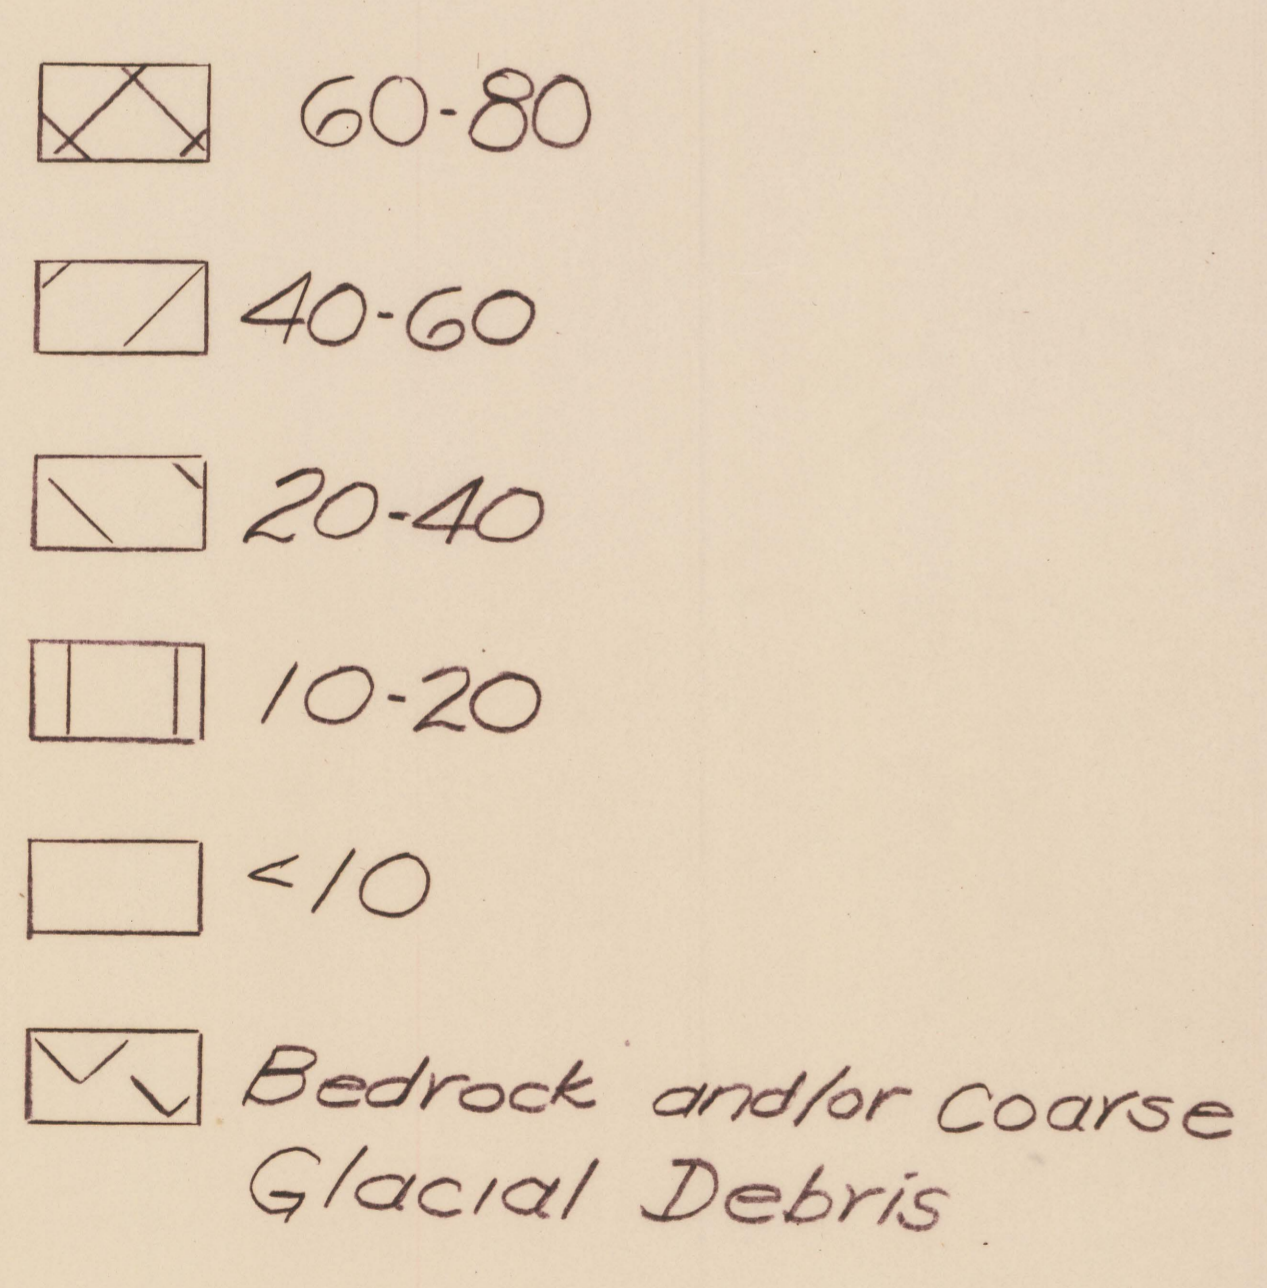 60-80
40-60
20-40
10-20
<10
Bedrock and/or Coarse
Glacial Debris